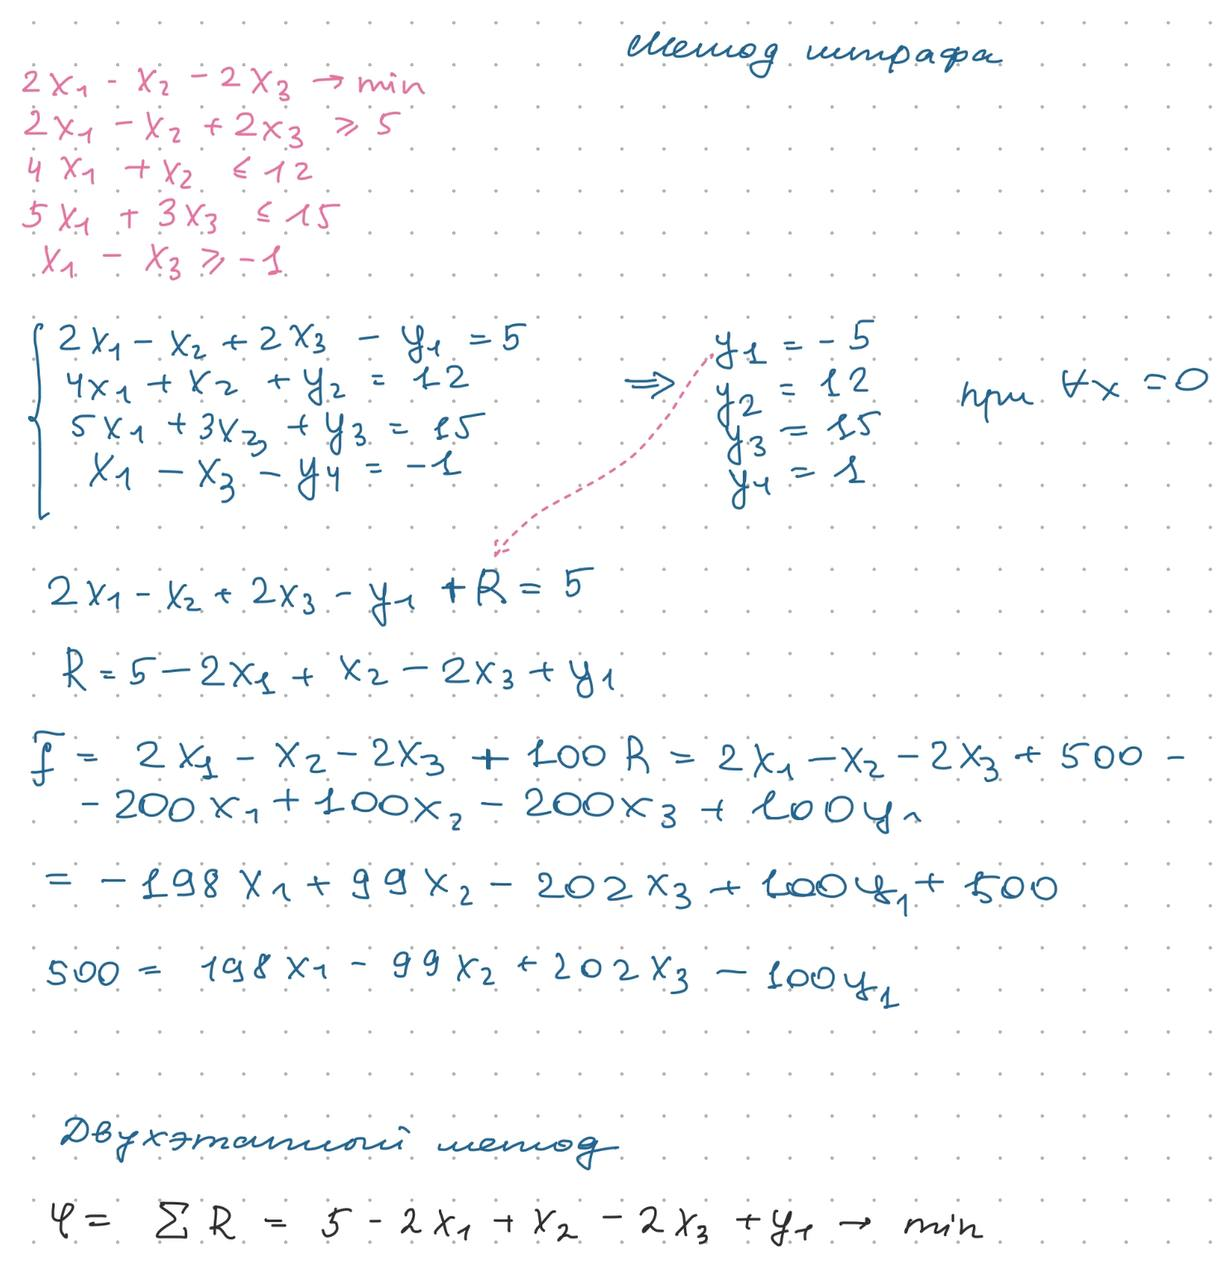 Метод штрафа
2x₁ - x₂ - 2x₃ → min
2x₁ - x₂ + 2x₃ ≥ 5
4x₁ + x₂ ≤ 12
5x₁ + 3x₃ ≤ 15
x₁ - x₃ ≥ -1
2x₁ - x₂ + 2x₃ - y₁ = 5 ⇒ y₁ = -5
4x₁ + x₂ + y₂ = 12 y₂ = 12 при ∀x = 0
5x₁ + 3x₃ + y₃ = 15 y₃ = 15
x₁ - x₃ - y₄ = -1 y₄ = 1
2x₁ - x₂ + 2x₃ - y₁ + R = 5
R = 5 - 2x₁ + x₂ - 2x₃ + y₁
f̅ = 2x₁ - x₂ - 2x₃ + 100R = 2x₁ - x₂ - 2x₃ + 500 -
- 200x₁ + 100x₂ - 200x₃ + 100y₁
= -198x₁ + 99x₂ - 202x₃ + 100y₁ + 500
500 = 198x₁ - 99x₂ + 202x₃ - 100y₁
Двухэтапный метод
φ = ∑ R = 5 - 2x₁ + x₂ - 2x₃ + y₁ → min